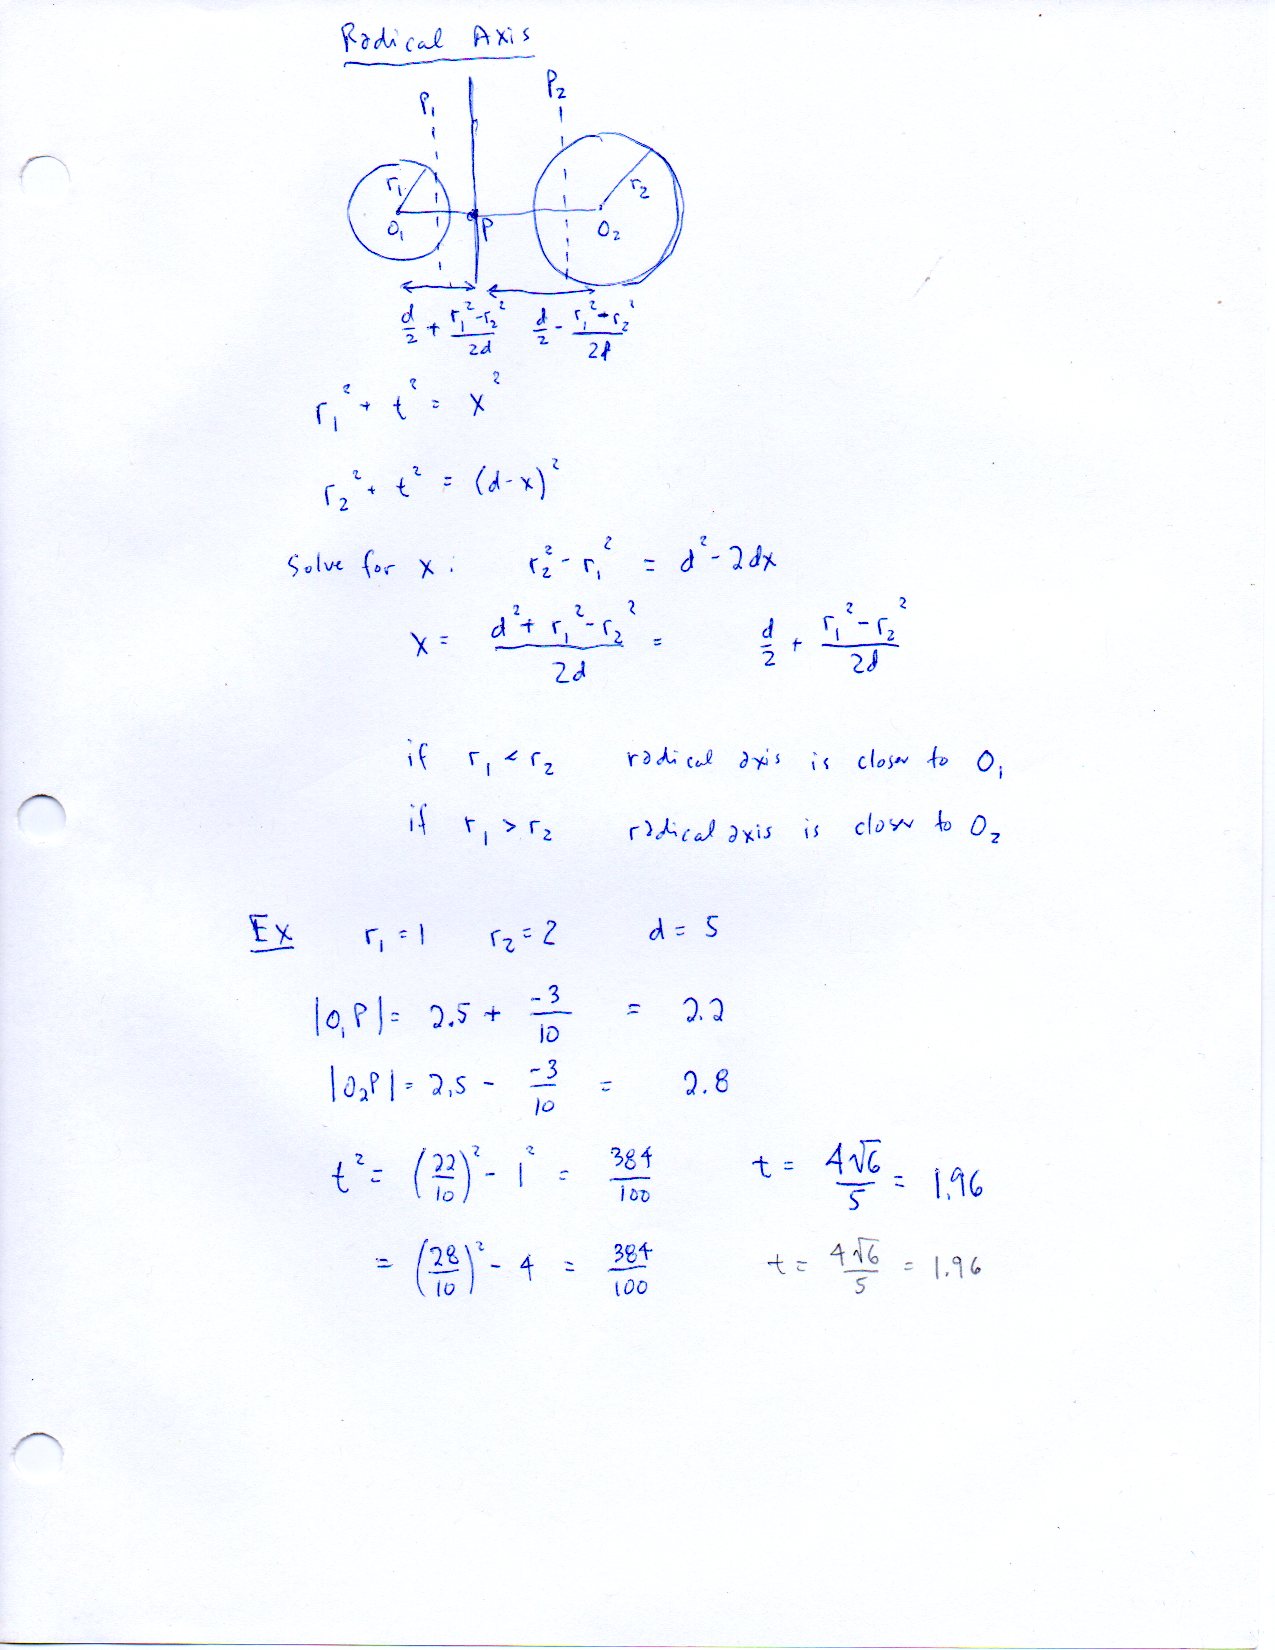 Radical Axis
P₁ P₂
r₁ r₂
O₁ P O₂
d/2 + (r₁² - r₂²)/2d d/2 - (r₁² - r₂²)/2d
r₁² + t² = x²
r₂² + t² = (d-x)²
Solve for x: r₂² - r₁² = d² - 2dx
x = (d² + r₁² - r₂²)/2d = d/2 + (r₁² - r₂²)/2d
if r₁ < r₂ radical axis is closer to O₁
if r₁ > r₂ radical axis is closer to O₂
Ex r₁ = 1 r₂ = 2 d = 5
|O₁P| = 2.5 + -3/10 = 2.2
|O₂P| = 2.5 - -3/10 = 2.8
t² = (22/10)² - 1² = 384/100 t = 4√6/5 = 1.96
= (28/10)² - 4 = 384/100 t = 4√6/5 = 1.96